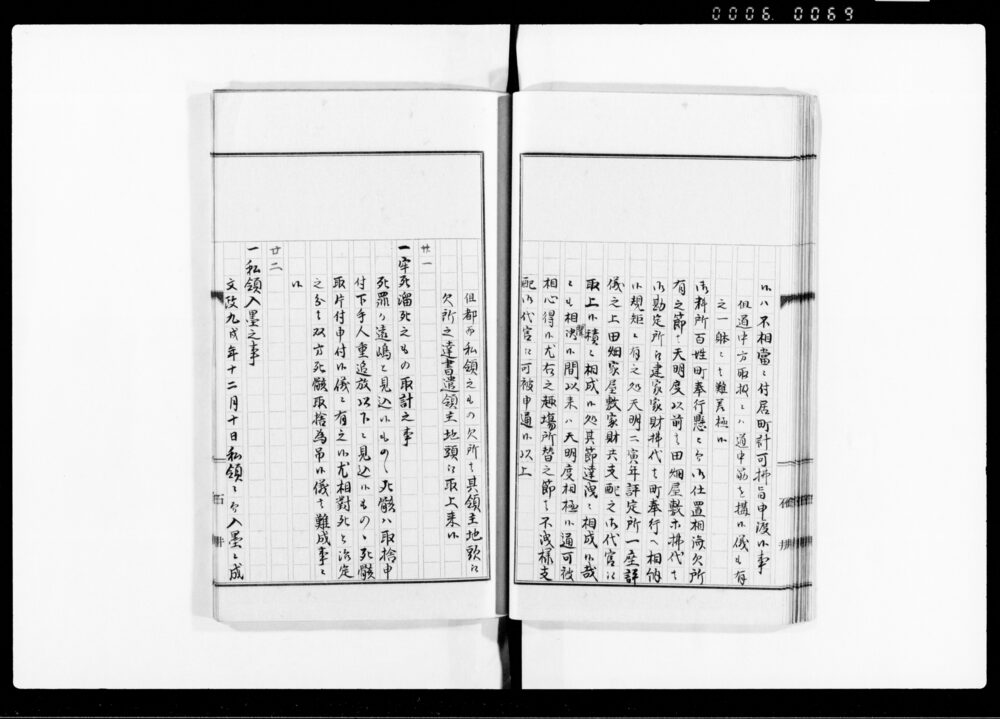 0006. 0069
候ハ不相當ニ付居町計可拂旨申渡候事
但道中方取扱ニハ道中筋を構候儀も有
之一躰ニも難差極候
御料所百姓町奉行懸ニ而御仕置相済欠所
有之節ハ天明度以前者田畑屋敷而已拂代者
御勘定所江建家家財拂代者町奉行へ相納
候規矩ニ有之処天明二寅年評定所一座評
儀之上田畑家屋敷家財共支配之御代官江
取上候積ニ相成候処其節達洩ニ相成候哉
ニも相聞候間以来ハ天明度相極候通可被
相心得候尤右之趣場所替之節ニ不洩様支
配御代官江可被申通候以上
但都而私領之もの欠所者其領主地頭江
欠所之達書遣領主地頭江取上来候
廿一
一牢死溜死之もの取計之事
死罪か遠嶋と見込候もの之死骸ハ取捨申
付下手人重追放以下と見込候もの之死骸
取片付申付候儀ニ有之候尤相對死と治定
之分者双方死骸取捨為吊候儀者難成事ニ
候
廿二
一私領入墨之事
文政九戌年十二月十日私領ニ而入墨ニ成